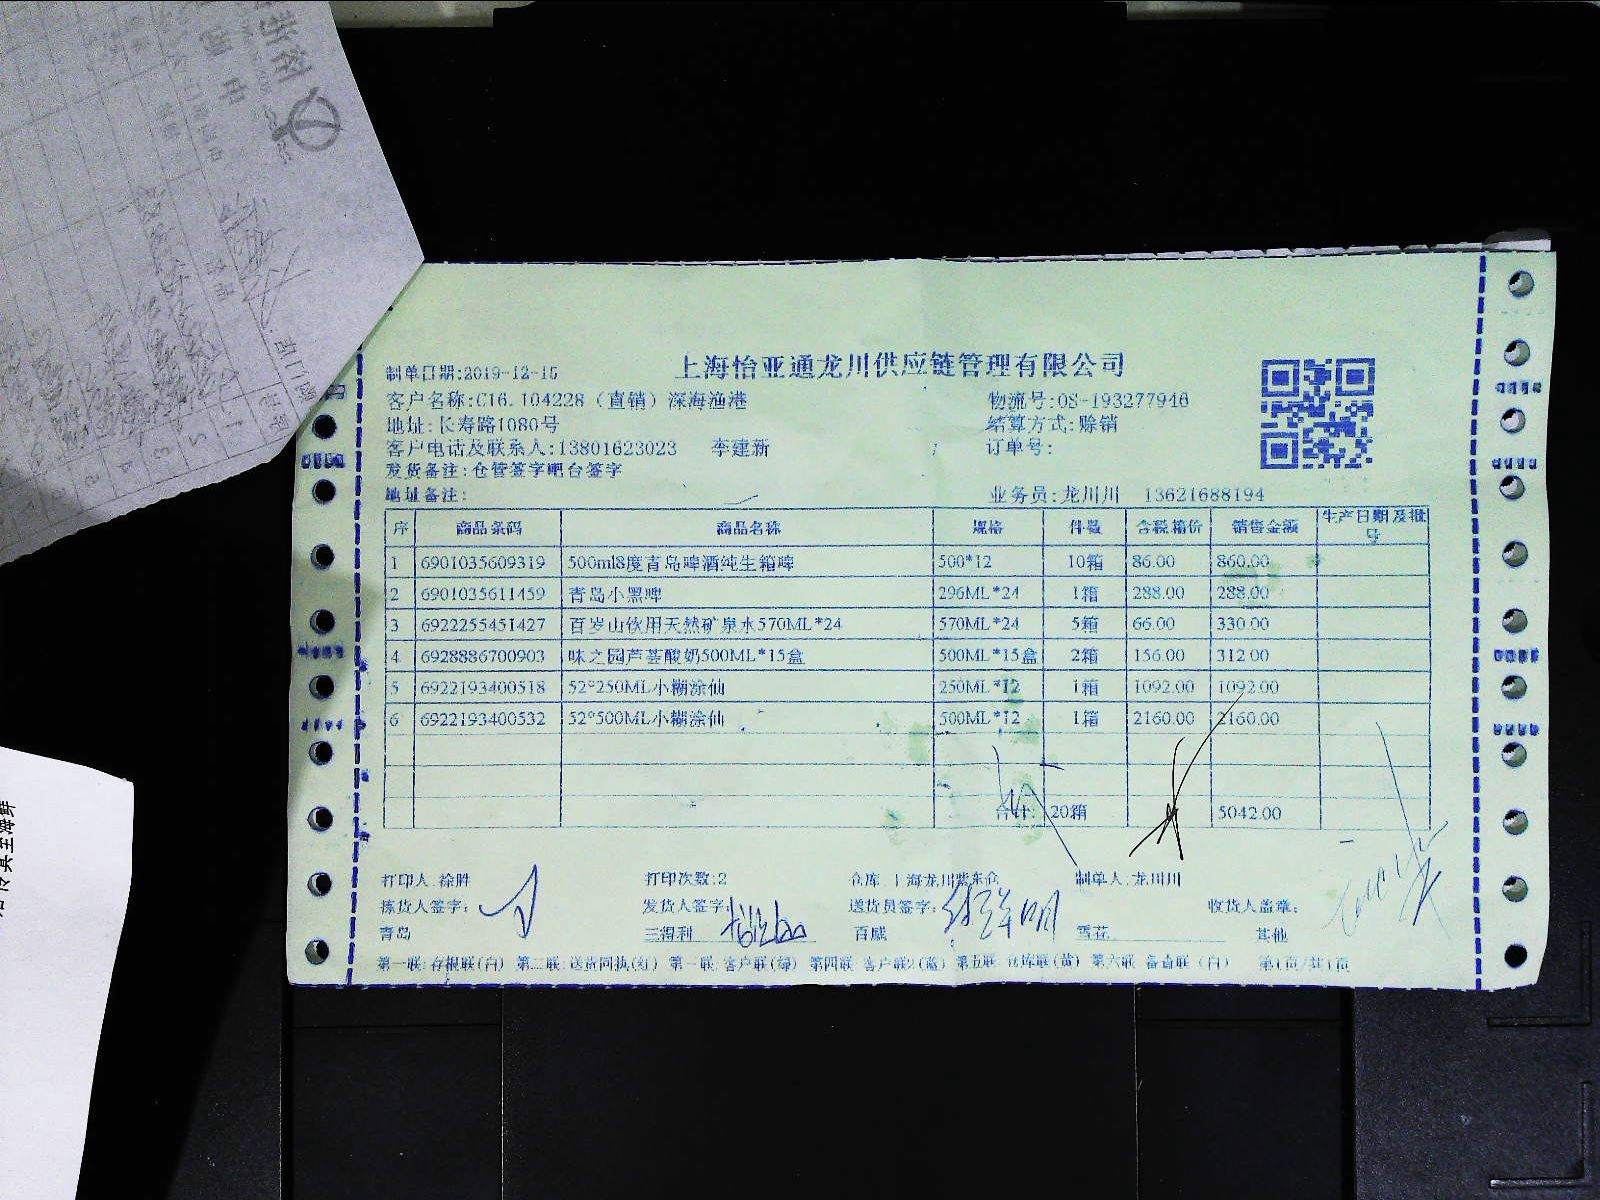 上海怡亚通龙川供应链管理有限公司
制单日期:2019-12-15
客户名称:C16.104228（直销）深海渔港 物流号:08-193277946
地址:长寿路1080号 结算方式:赊销
客户电话及联系人:13801623023 李建新 订单号:
发货备注:仓管签字吧台签字
地址备注: 业务员:龙川川 13621688194
序 商品条码 商品名称 规格 件数 含税箱价 销售金额 生产日期及批号
1 6901035609319 500ml8度青岛啤酒纯生箱啤 500*12 10箱 86.00 860.00
2 6901035611459 青岛小黑啤 296ML*24 1箱 288.00 288.00
3 6922255451427 百岁山饮用天然矿泉水570ML*24 570ML*24 5箱 66.00 330.00
4 6928886700903 味之园芦荟酸奶500ML*15盒 500ML*15盒 2箱 156.00 312.00
5 6922193400518 52°250ML小糊涂仙 250ML*12 1箱 1092.00 1092.00
6 6922193400532 52°500ML小糊涂仙 500ML*12 1箱 2160.00 2160.00
合计: 20箱 5042.00
打印人:徐胜 打印次数:2 仓库:上海龙川紫东仓 制单人:龙川川
拣货人签字: 发货人签字: 送货员签字: 收货人盖章:
青岛 三得利 百威 雪花 其他
第一联:存根联(白) 第二联:送货回执(红) 第一联:客户联(绿) 第四联:客户联2(蓝) 第五联:仓库联(黄) 第六联:备查联(白) 第1页/共1页